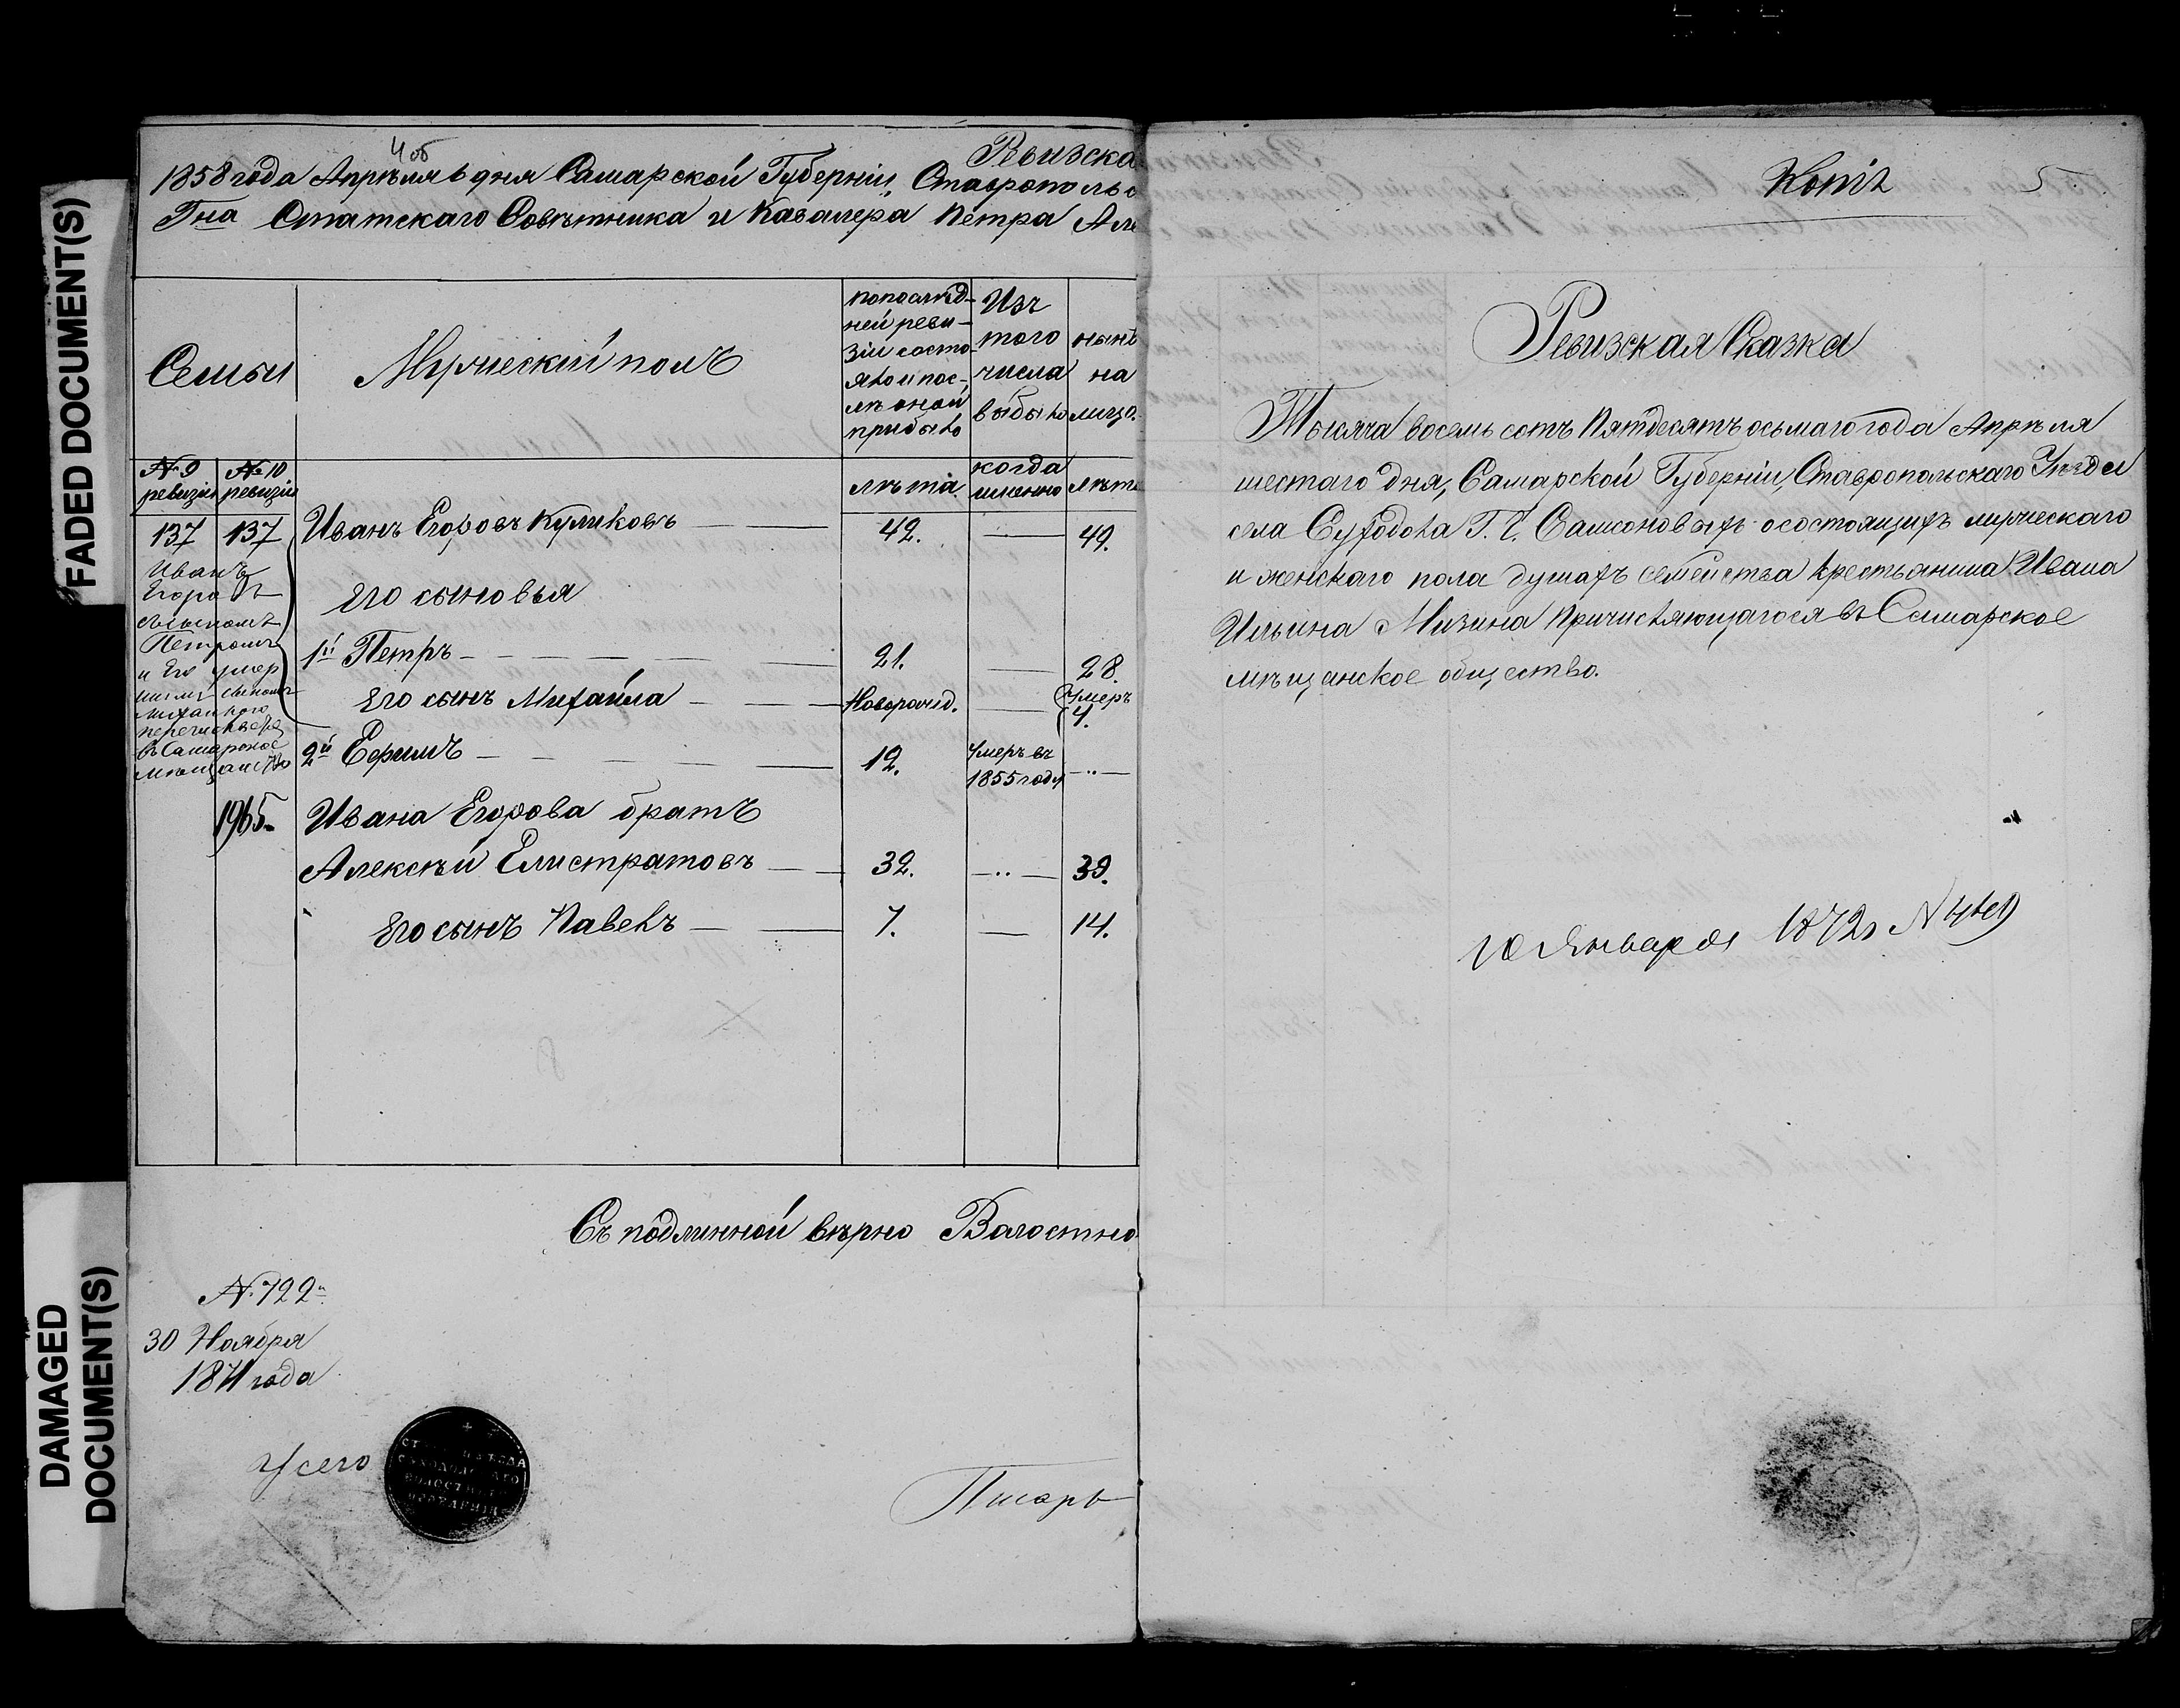 FADED DOCUMENT(S)
DAMAGED
DOCUMENT(S)
4 об
Ревизска
1858 года Апрѣля 6 дня Самарской Губерніи, Ставропольс
Гна Статскаго Совѣтника и Кавалера Петра Але
Семьи
Мужескій полъ
по послѣд-
ней реви-
зіи состо-
яло и пос-
лѣ оной
прибыло
Изъ
того
числа
выбыло
нынѣ
на
лицо.
№ 9
ревизіи
№ 10
ревизіи
лѣта
когда
именно
лѣта
137 137 Иванъ Егоровъ Куликовъ 42. 49.
Иванъ
Егоровъ
съ сыномъ
Петромъ
и Его умер
шимъ сыномъ
Михайлого
перечислъ
въ Самарское
мѣщанство
Его сыновья
1й Петръ 21. 28.
Его сынъ Михайла Новорожд. Умеръ
4.
2й Ефимъ 12. Умеръ въ
1855 году
1965. Ивана Егорова братъ
Алексѣй Елистратовъ 32. 39.
Его сынъ Павелъ 7. 14.
Съ подлинной вѣрно Волостно
№ 722
30 Ноября
1871 года
Писарь
Копія
5
Ревизская Сказка
Тысяча восемь сотъ Пятдесятъ осьмаго года Апрѣля
шестаго дня, Самарской Губерніи, Ставропольскаго Уѣзда
села Суходола Г. Г. Самсоновыхъ о состоящихъ мужескаго
и женскаго пола душахъ семейства крестьянина Ивана
Ильина Мизина Причисляющагося въ Самарское
мѣщанское общество.
10 Января 1872